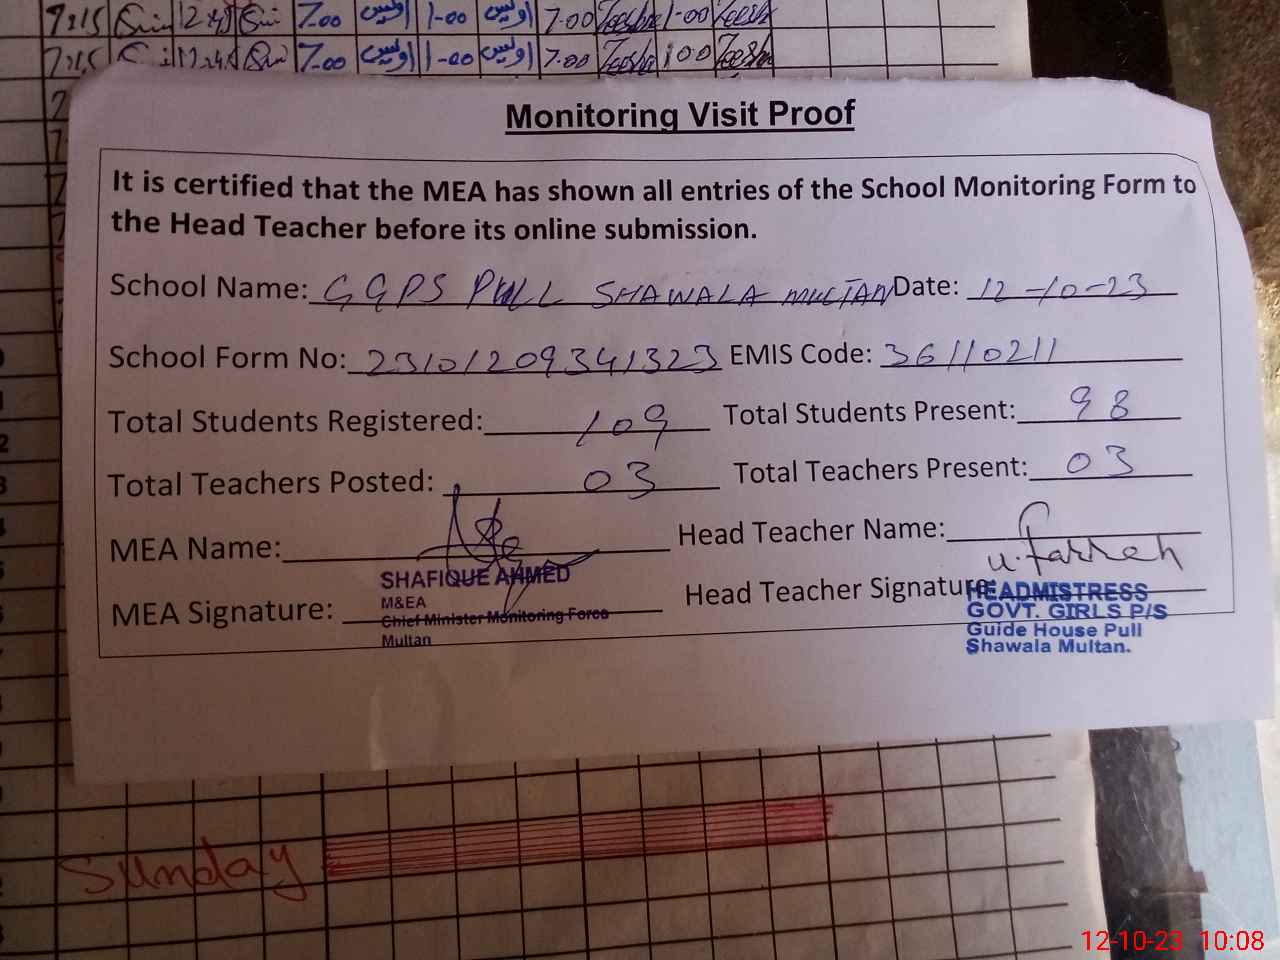 7:15 12:45 7-00 اویس 1-00 اویس 7.00 Zeesha 1-00 Zeesh
7:15 12:45 7-00 اویس 1-00 اویس 7.00 Zeesha 1:00 Zeesh
Monitoring Visit Proof
It is certified that the MEA has shown all entries of the School Monitoring Form to
the Head Teacher before its online submission.
School Name: GGPS PULL SHAWALA MULTAN Date: 12-10-23
School Form No: 23101209341323 EMIS Code: 36110211
Total Students Registered: 109 Total Students Present: 98
Total Teachers Posted: 03 Total Teachers Present: 03
MEA Name: Head Teacher Name:
u.farrah
SHAFIQUE AHMED
M&EA
Chief Minister Monitoring Force
Multan
MEA Signature: Head Teacher Signature:
HEADMISTRESS
GOVT. GIRLS P/S
Guide House Pull
Shawala Multan.
Sunday
12-10-23 10:08